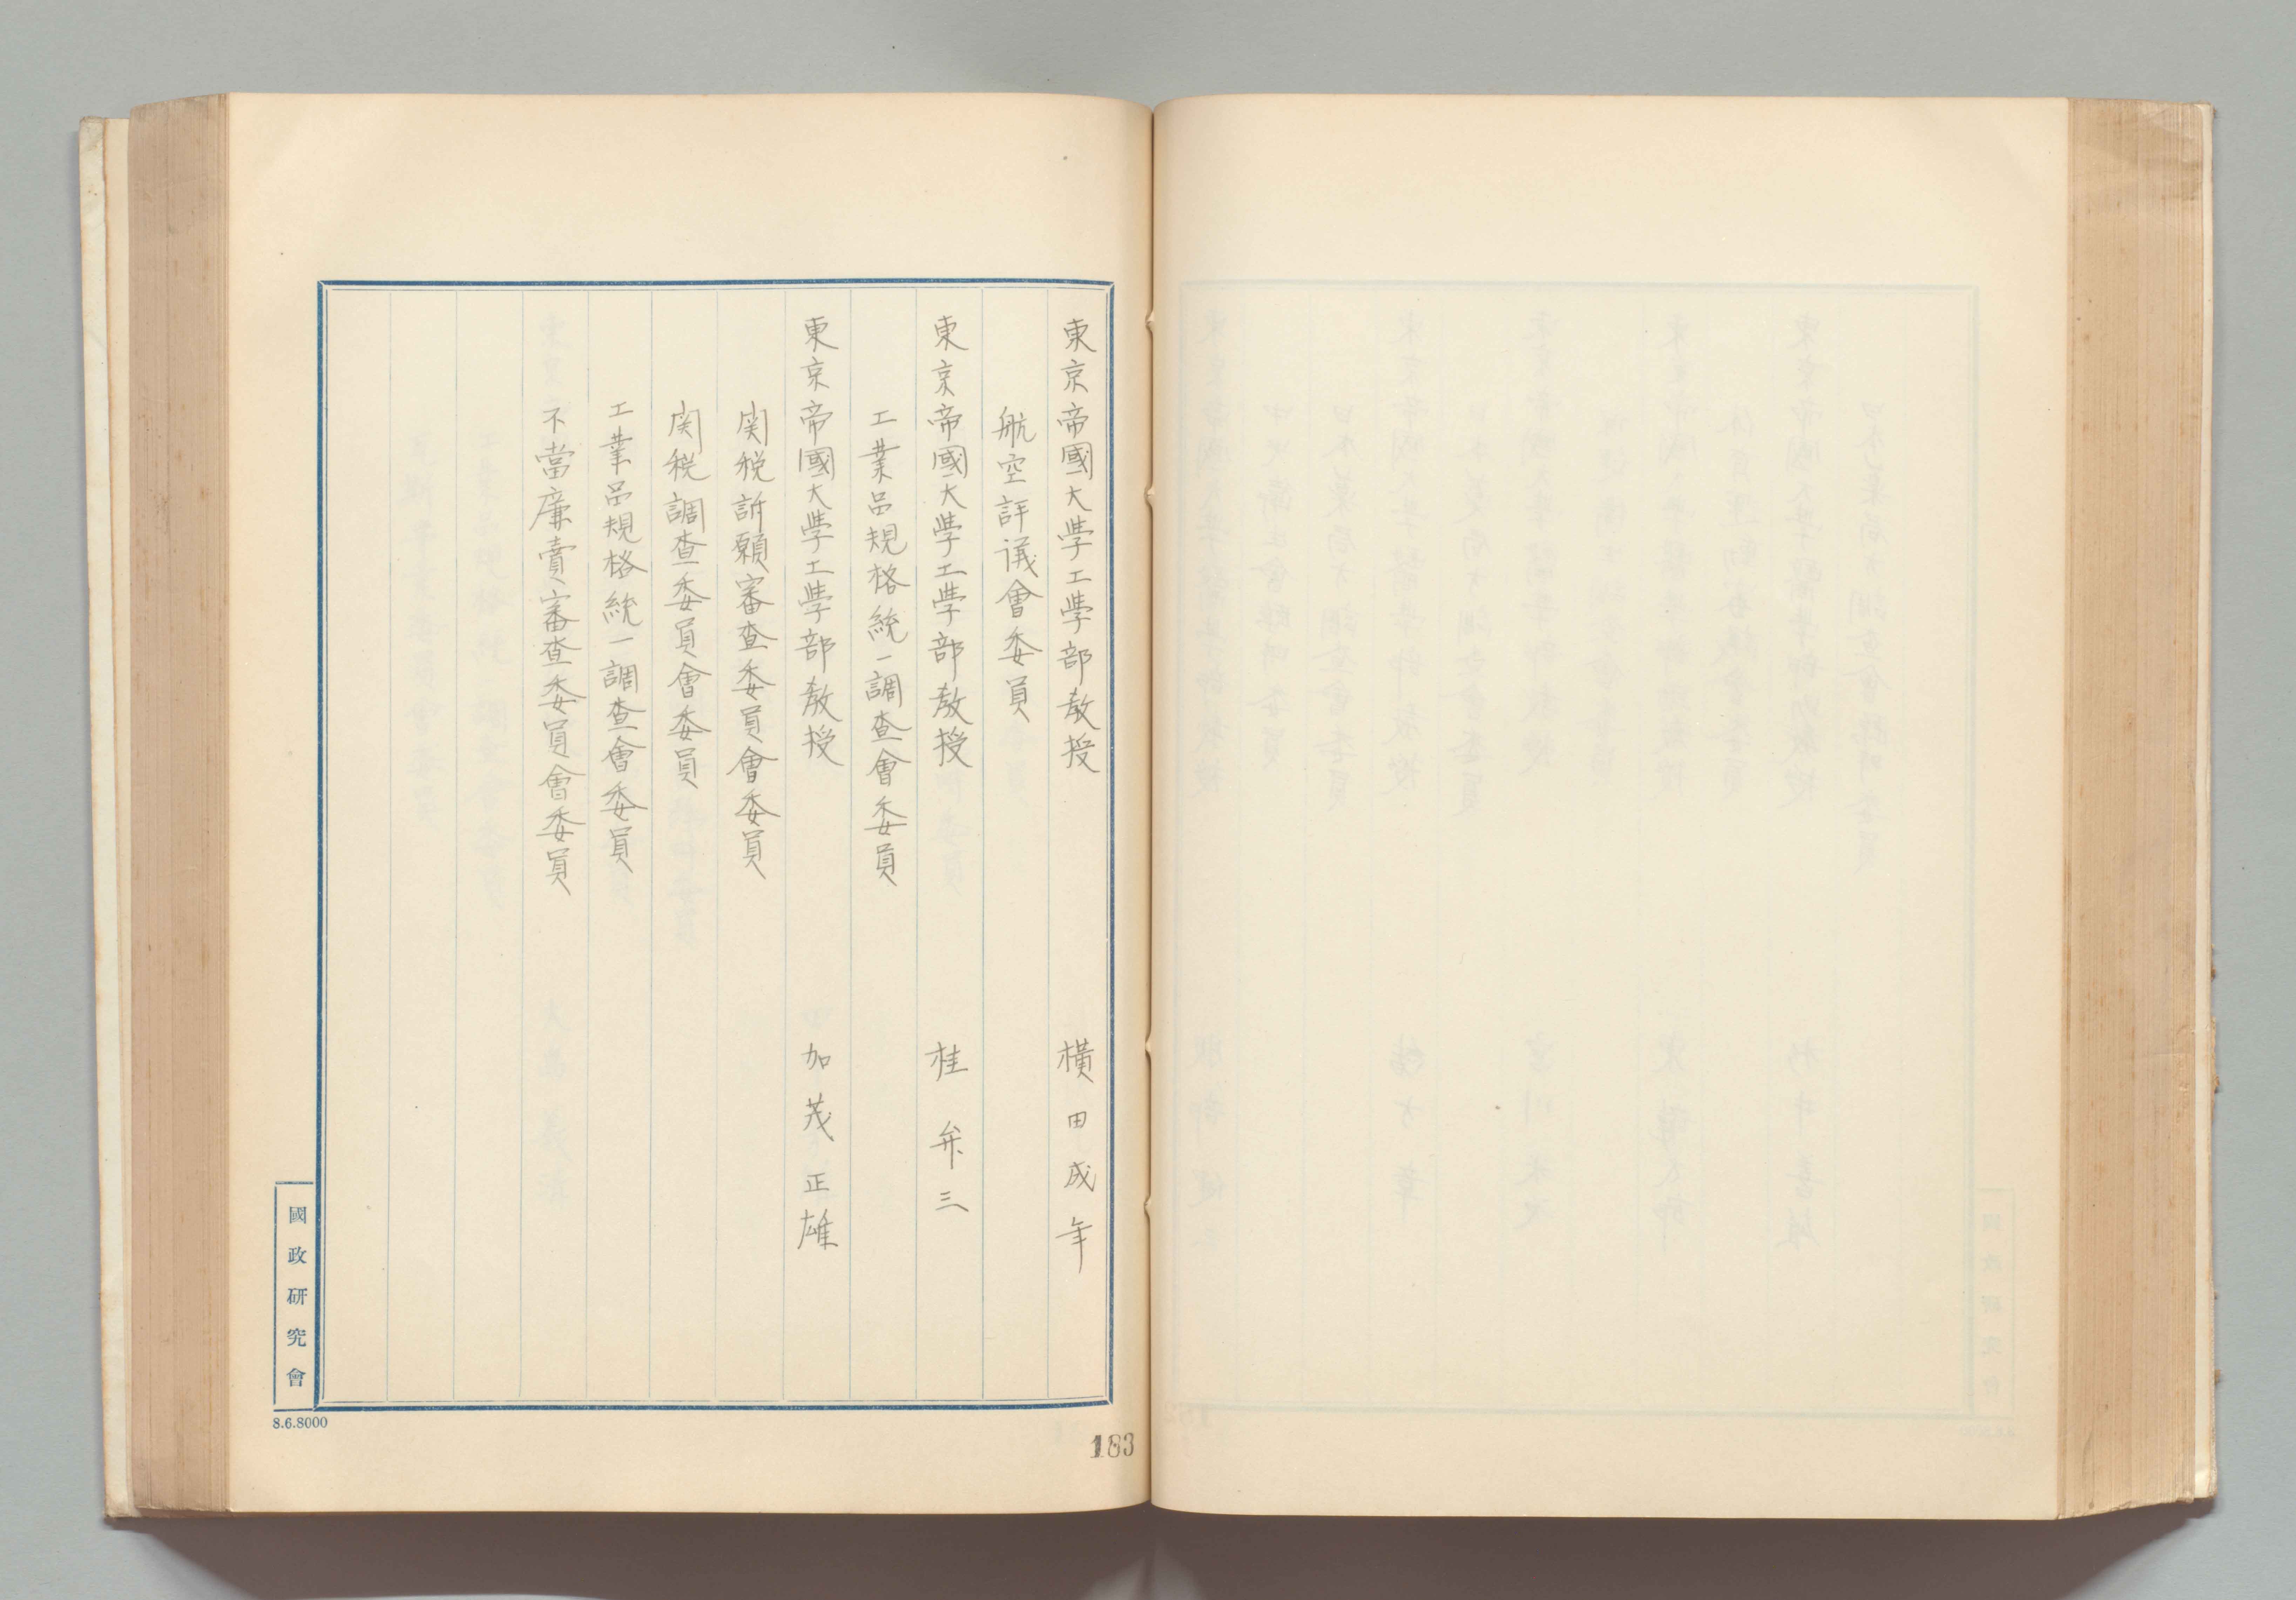 東京帝國大學工學部教授 横田成年
航空評議會委員
東京帝國大學工學部教授 桂弁三
工業品規格統一調査會委員
東京帝國大學工學部教授 加茂正雄
関税訴願審査委員會委員
関税調査委員會委員
工業品規格統一調査會委員
不當廉賣審査委員會委員
國政研究會
8.6.8000
183